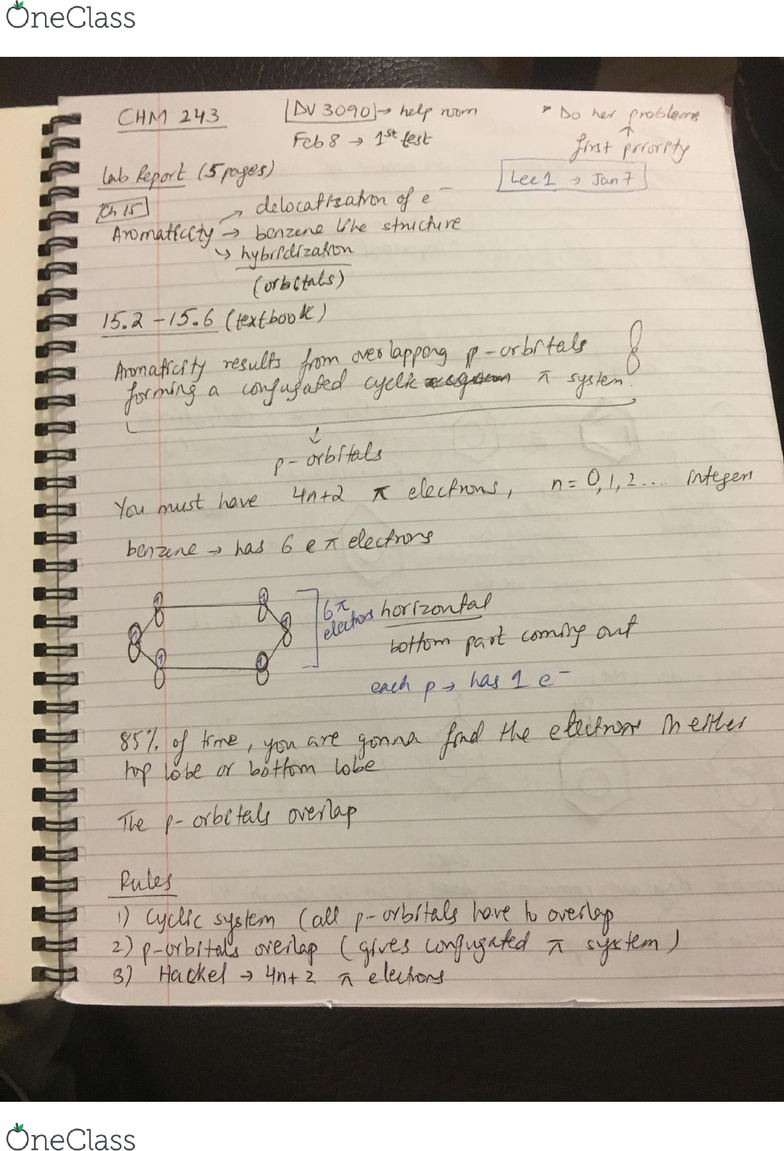 OneClass
CHM 243
DV 3090 → help room
Feb 8 → 1st test
* Do her problems
↑
first priority
Lab Report (5 pages)
Lec 1 → Jan 7
Ch 15
→ delocalization of e⁻
Aromaticity → benzene like structure
↳ hybridization
(orbitals)
15.2 - 15.6 (textbook)
Aromaticity results from overlapping p-orbitals
forming a conjugated cyclic π system.
↓
p-orbitals
You must have 4n+2 π electrons, n = 0,1,2.... integers
benzene → has 6 e π electrons
6π
electrons
horizontal
bottom part coming out
each p → has 1 e⁻
85% of time, you are gonna find the electrons in either
top lobe or bottom lobe
The p-orbitals overlap
Rules
1) Cyclic system (all p-orbitals have to overlap
2) p-orbitals overlap (gives conjugated π system)
3) Hackel → 4n+2 π electrons
OneClass